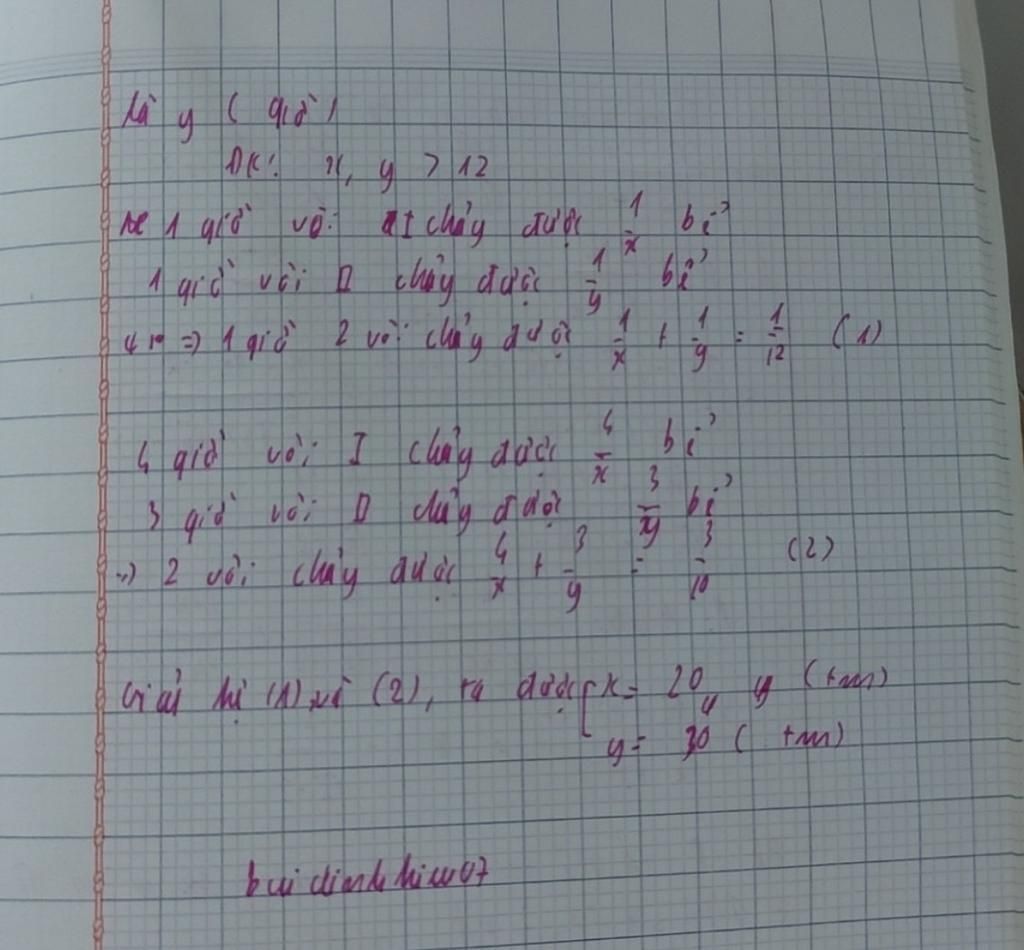 là y ( giờ)
ĐK: x, y > 12
1 giờ vòi I chảy được 1/x bể
1 giờ vòi II chảy được 1/y bể
=> 1 giờ 2 vòi chảy được 1/x + 1/y = 1/12 (1)
4 giờ vòi I chảy được 4/x bể
3 giờ vòi II chảy được 3/y bể
=> 2 vòi chảy được 4/x + 3/y = 3/10 (2)
Giải hệ (1) và (2), ta được { x = 20 (tm)
y = 30 ( tm)